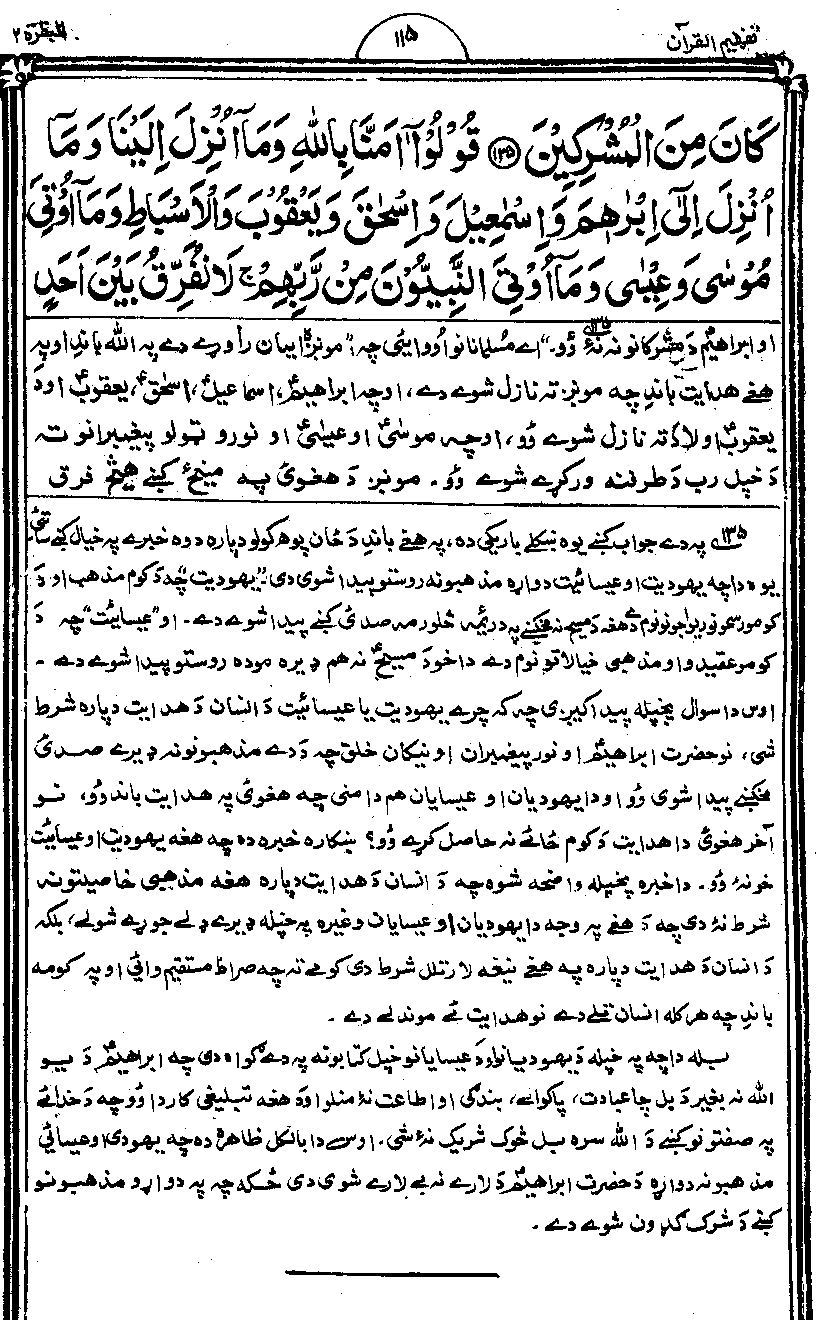 تفهیم القرآن ۱۱۵ البقرة ۲
كَانَ مِنَ الْمُشْرِكِيْنَ ۝۱۳۵ قُوْلُوْٓا اٰمَنَّا بِاللّٰهِ وَمَآ اُنْزِلَ اِلَيْنَا وَمَآ
اُنْزِلَ اِلٰٓى اِبْرٰهٖمَ وَاِسْمٰعِيْلَ وَاِسْحٰقَ وَيَعْقُوْبَ وَالْاَسْبَاطِ وَمَآ اُوْتِيَ
مُوْسٰى وَعِيْسٰى وَمَآ اُوْتِيَ النَّبِيُّوْنَ مِنْ رَّبِّهِمْ ۚ لَا نُفَرِّقُ بَيْنَ اَحَدٍ
او ابراهیمؑ دَ مشرکانو نه نهٔ وُو۔ ۱۳۵ "اے مُسلمانانو اُووایئی چه: "مونږه ایمان راوړے دے په الله باندِ او په
هغے هدایت باندِ چه مونږ ته نازل شوے دے، او چه ابراهیمؑ، اسماعیلؑ، اسحٰقؑ، یعقوبؑ او دَ
یعقوبؑ اولاد ته نازل شوے وُو، او چه موسٰیؑ او عیسٰیؑ او نورو ټولو پیغمبرانو ته
دَ خپل رب دَ طرفنه ورکړے شوے وُو۔ مونږ دَ هغویٔ په مینځ کښے هیڅ فرق
۱۳۵ په دے جواب کښے یوه ښکلے باریکی ده، په هغے باندِ دَ ځان پوهه کولو دپاره دوه خبرے په خیال کښے ساتئی
یوه دا چه یهودیت او عیسائیت دواړه مذهبونه روستو پیدا شوی دی۔ "یهودیت" چه دَ کوم مذهب او دَ
کومو رسمونو رواجونو نوم دے هغه دَ مسیحؑ نه مخکښے په دریمه څلورمه صدیٔ کښے پیدا شوے دے۔ او "عیسائیت" چه دَ
کومو عقیدو او مذهبی خیالاتو نوم دے دا خود مسیحؑ نه هم ډیره موده روستو پیدا شوے دے۔
اوس دا سوال پخپله پیدا کیږی چه که چرے یهودیت یا عیسائیت دَ انسان دَ هدایت دپاره شرط
شی، نو حضرت ابراهیمؑ او نور پیغمبران او نیکان خلق چه دَ دے مذهبونو نه ډیرے صدیٔ
مخکښے پیدا شوی وُو او دا یهودیان او عیسایان هم دا منی چه هغویٔ په هدایت باندِ وُو، نو
آخر هغویٔ دا هدایت دَ کوم ځائے نه حاصل کړے وُو؟ ښکاره خبره ده چه هغه یهودیت او عیسائیت
خو نهٔ وُو۔ دا خبره پخپله واضحه شوه چه دَ انسان دَ هدایت دپاره هغه مذهبی خاصیتونه
شرط نهٔ دی چه دَ هغے په وجه دا یهودیان او عیسایان وغیره په خپله ډیرے ډلے جوړے شولے، بلکه
دَ انسان دَ هدایت دپاره په هغے نیغه لار تلل شرط دی کومے ته چه صراط مستقیم وائی او په کومه
باندِ چه هر کله انسان تللے دے نو هدایت ئے موندلے دے۔
بله دا چه په خپله دَ یهودیانو او دَ عیسایانو خپل کتابونه په دے ګواه دی چه ابراهیمؑ دَ یو
الله نه بغیر دَ بل چا عبادت، پاکوالے، بندګی او اطاعت نهٔ منلو او دَ هغه تبلیغی کار دا وُو چه دَ خدائے
په صفتونو کښے دَ الله سره بل څوک شریک نهٔ شی۔ اوس دا بالکل ظاهره ده چه یهودی او عیسائی
مذهبونه دواړه دَ حضرت ابراهیمؑ دَ لارے نه بے لارے شوی دی ځکه چه په دواړو مذهبونو
کښے دَ شرک ګډون شوے دے۔